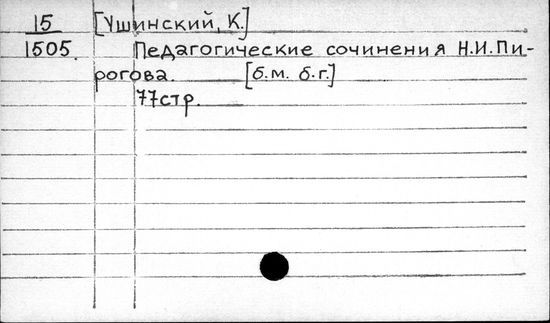 15 [Ушинский, К.]
1505. Педагогические сочинения Н.И.Пи-
рогова. [б.м. б.г.]
77стр.